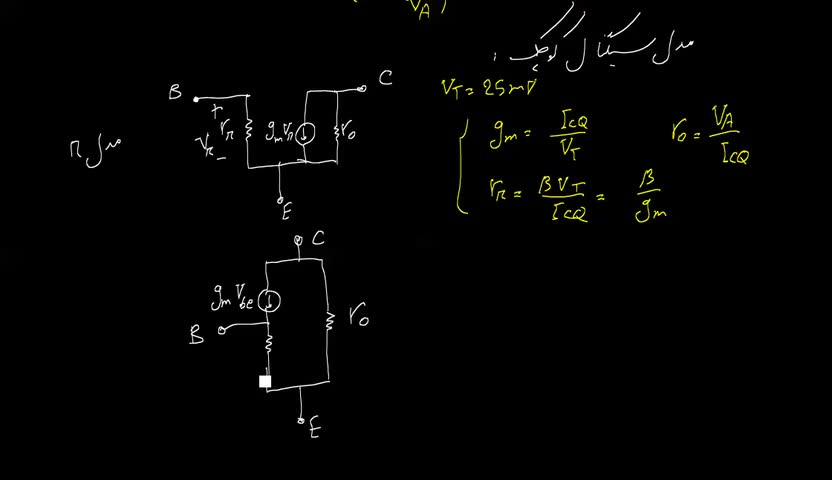 V_A )
مدل سیگنال کوچک :
V_T = 25mV
g_m = I_CQ / V_T
r_o = V_A / I_CQ
r_π = β V_T / I_CQ = β / g_m
مدل π
B
+
V_π
-
r_π
g_m V_π
r_o
C
E
C
g_m V_be
B
r_o
E